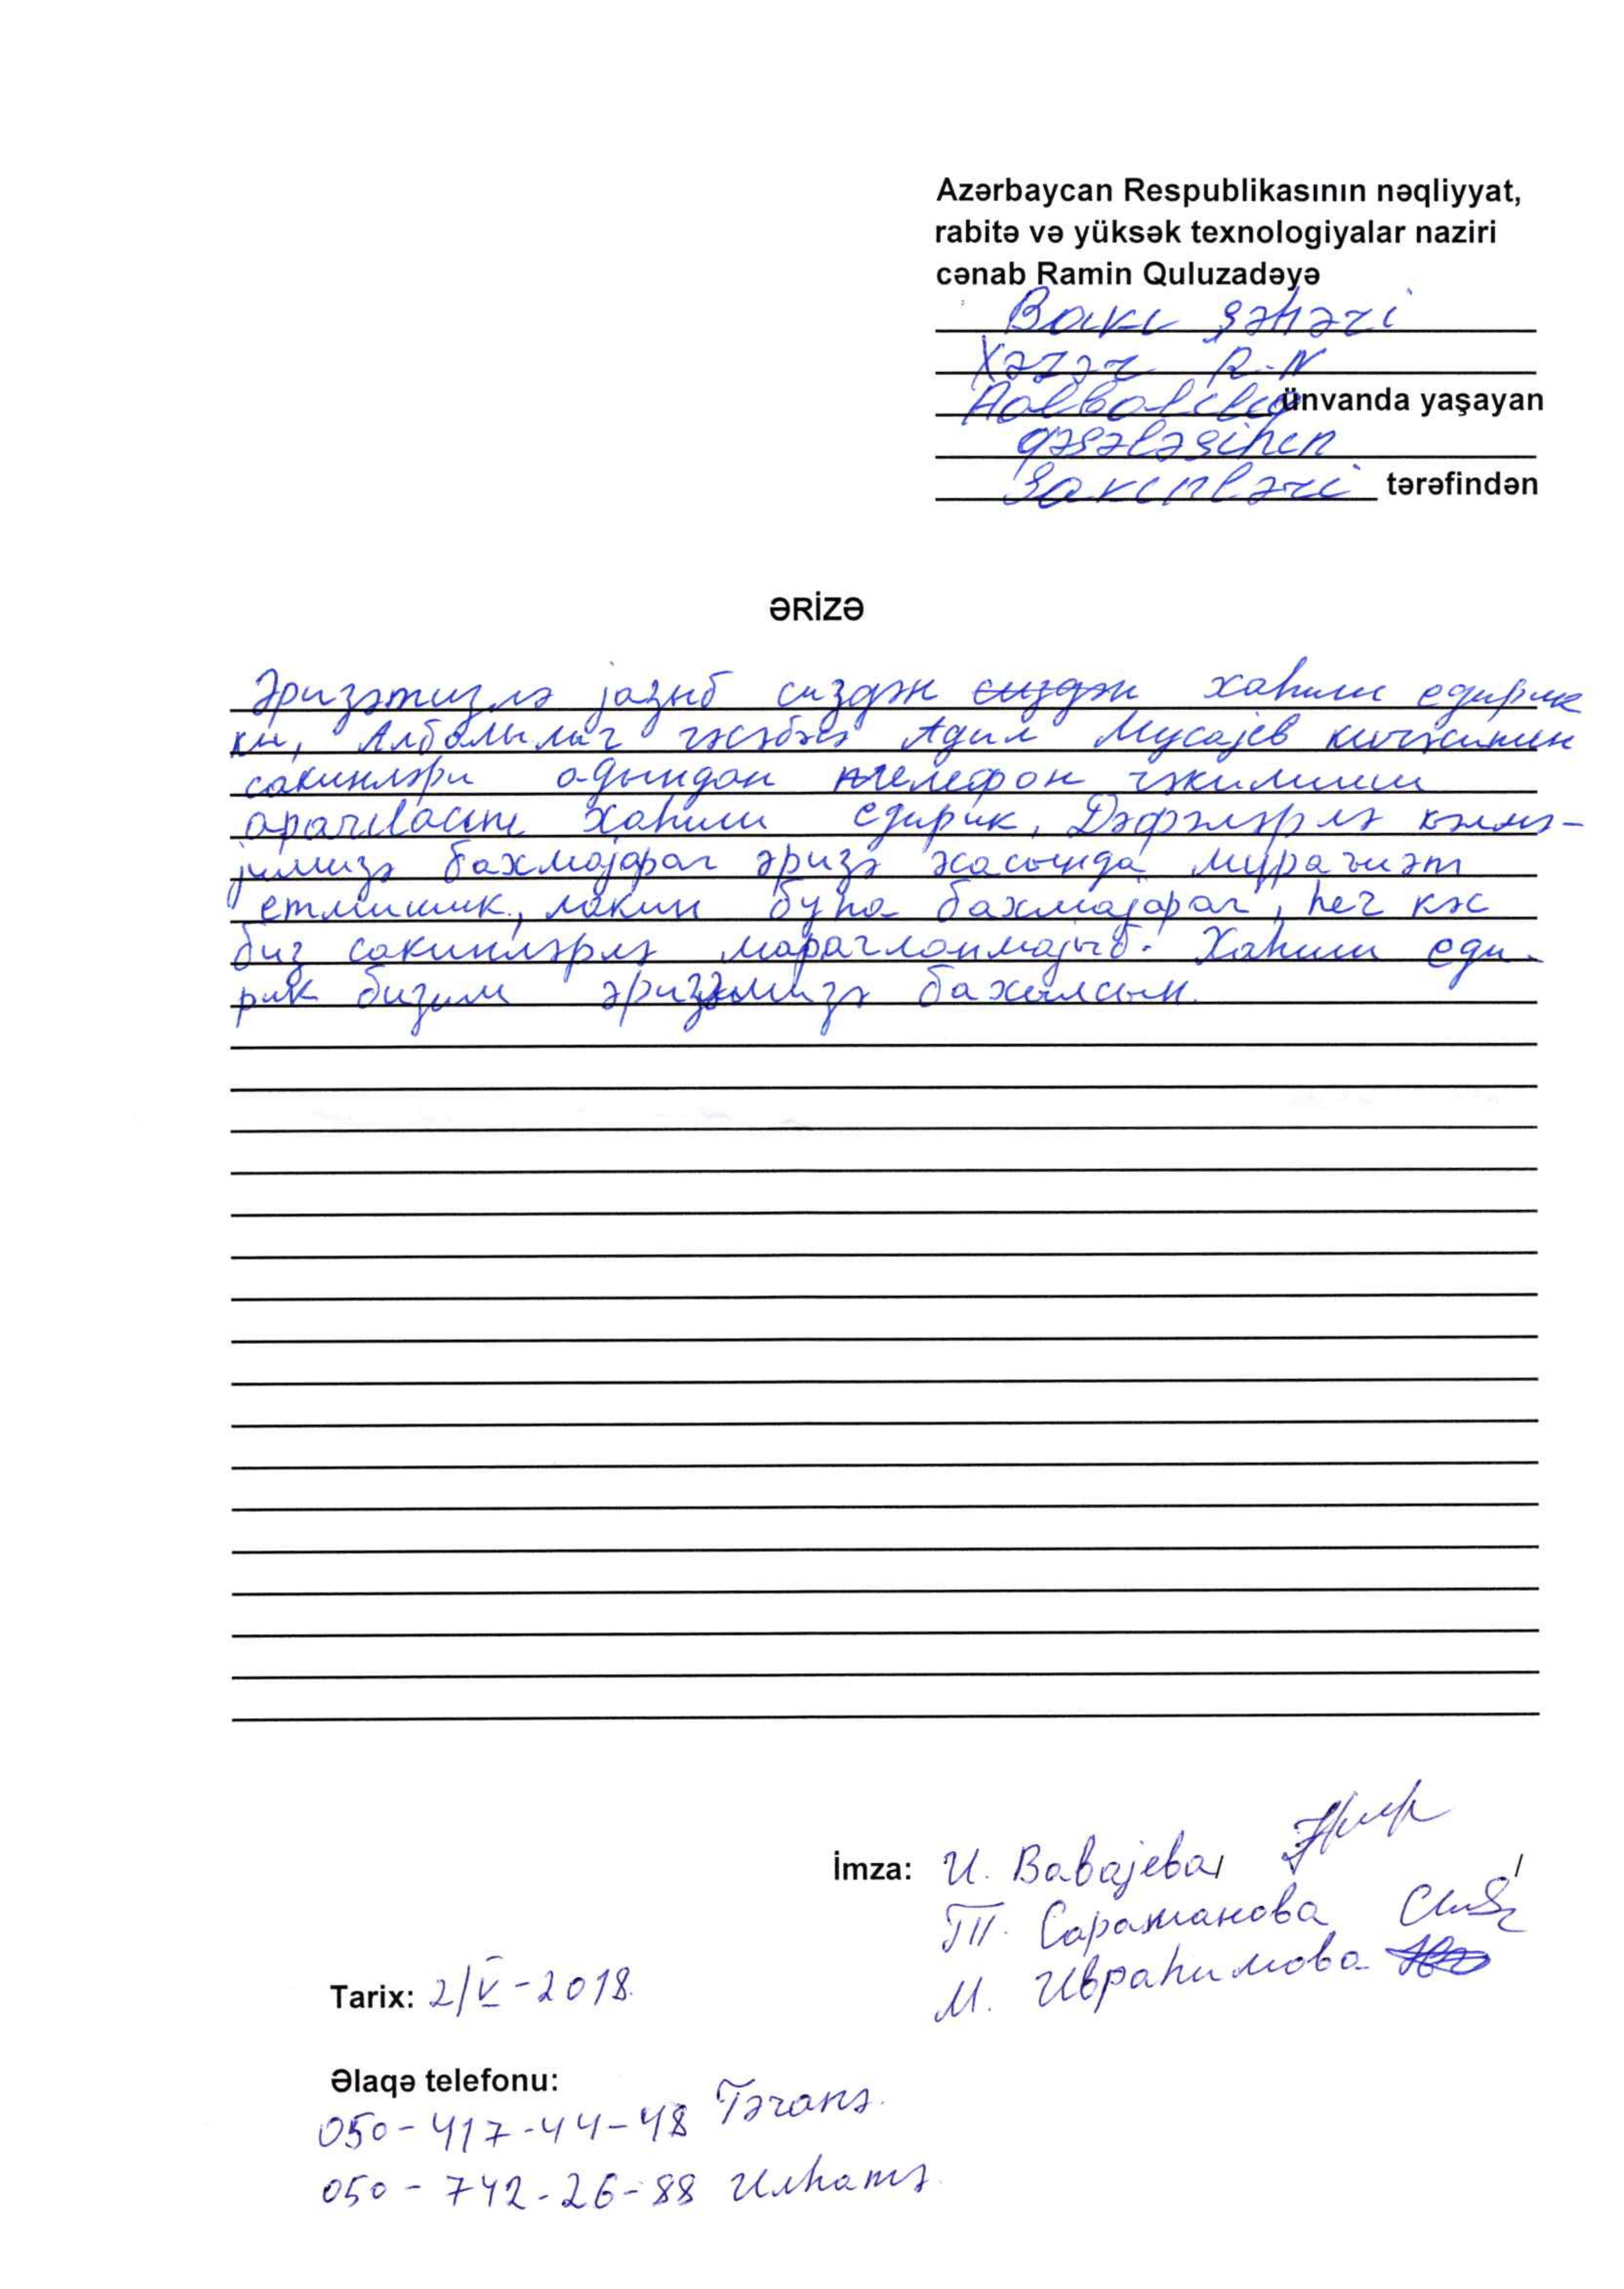 Azərbaycan Respublikasının nəqliyyat,
rabitə və yüksək texnologiyalar naziri
cənab Ramin Quluzadəyə
Bakı şəhəri
Xəzər R-N
Aolbalılıq ünvanda yaşayan
qəsəbəsinin
Sakinləri tərəfindən
ƏRİZƏ
Əризәmизлә јазыб сиздән сиздән хаһиш едирик
ки, Албалылыг гәсәбәси Адил Мусајев күчәсинин
сакинләри адындан телефон чәкилиши
хаһиш едирик, Дәфәләрлә кәлмә-
јимизә бахмајараг әризә әсасында мурачиәт
етмишик, лакин буна бахмајараг, һеч кәс
биз сакинләрлә марагланмајыб. Хаһиш еди-
рик бизим әризәмизә бахылсын.
İmza: И. Babajeва
Т. Сарамановa
М. Ибраһимова
Tarix: 2/V-2018.
Əlaqə telefonu:
050-417-44-48 Тәranә.
050-742-26-88 Илhamә.